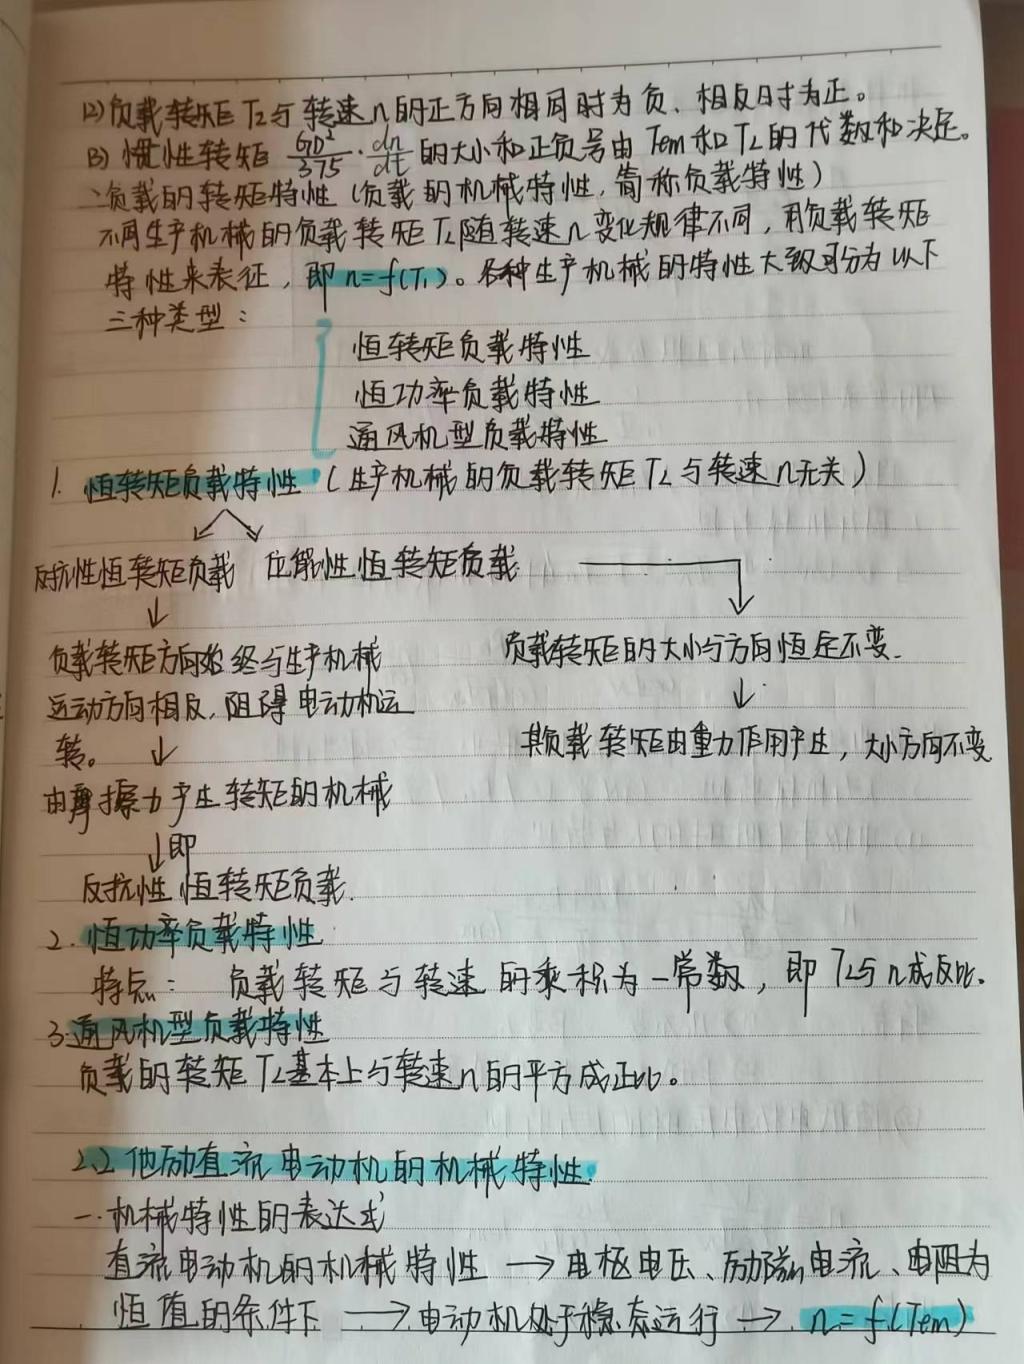 (2)负载转矩T2与转速n的正方向相同时为负、相反时为正。
(3)惯性转矩 GD²/375·dn/dt 的大小和正负号由Tem和TL的代数和决定。
二、负载的转矩特性(负载的机械特性,简称负载特性)
不同生产机械的负载转矩TL随转速n变化规律不同,用负载转矩
特性来表征,即n=f(TL)。各种生产机械的特性大致可分为以下
三种类型:
恒转矩负载特性
恒功率负载特性
通风机型负载特性
1. 恒转矩负载特性(生产机械的负载转矩TL与转速n无关)
反抗性恒转矩负载 位能性恒转矩负载
负载转矩方向始终与生产机械
运动方向相反,阻碍电动机运
转。
由摩擦力产生转矩的机械
即
反抗性恒转矩负载.
负载转矩的大小与方向恒定不变.
其负载转矩由重力作用产生,大小方向不变
2. 恒功率负载特性
特点: 负载转矩与转速的乘积为一常数,即TL与n成反比.
3.通风机型负载特性
负载的转矩TL基本上与转速n的平方成正比。
2.2 他励直流电动机的机械特性.
一.机械特性的表达式
直流电动机的机械特性 → 电枢电压、励磁电流、电阻为
恒值的条件下 → 电动机处于稳态运行 → n=f(Tem)